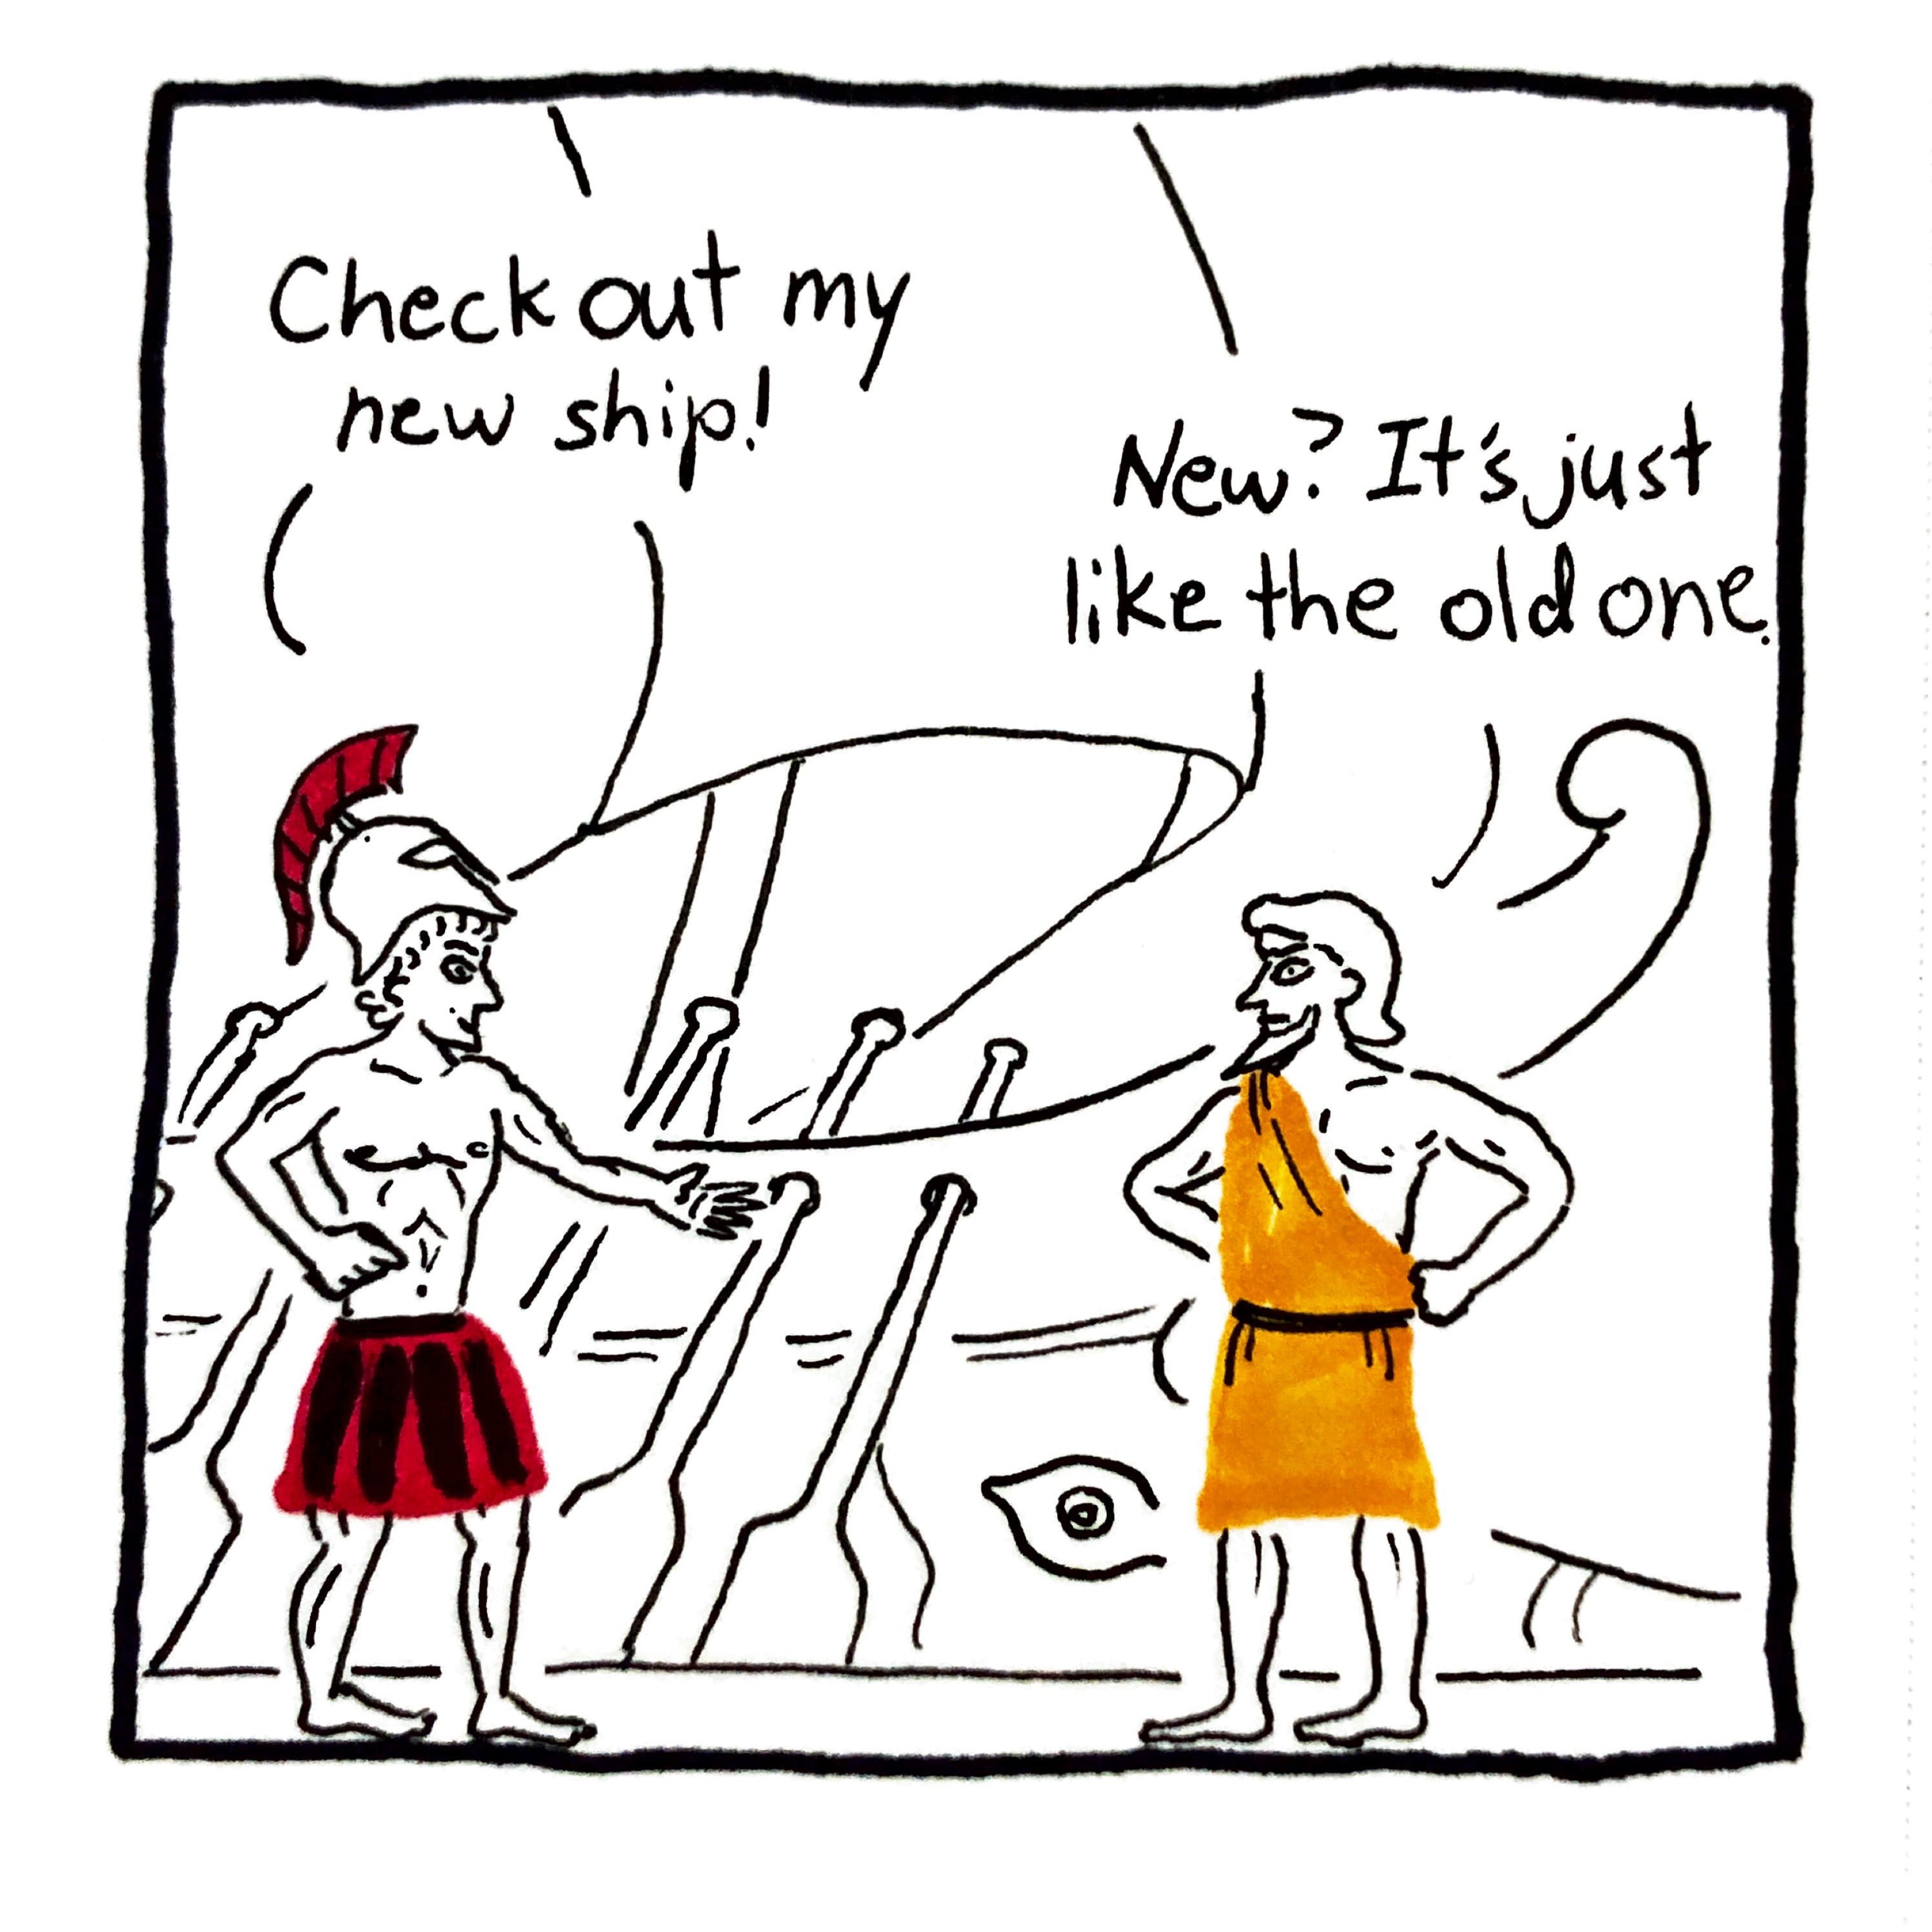 Check out my
new ship!
New? It's just
like the old one.